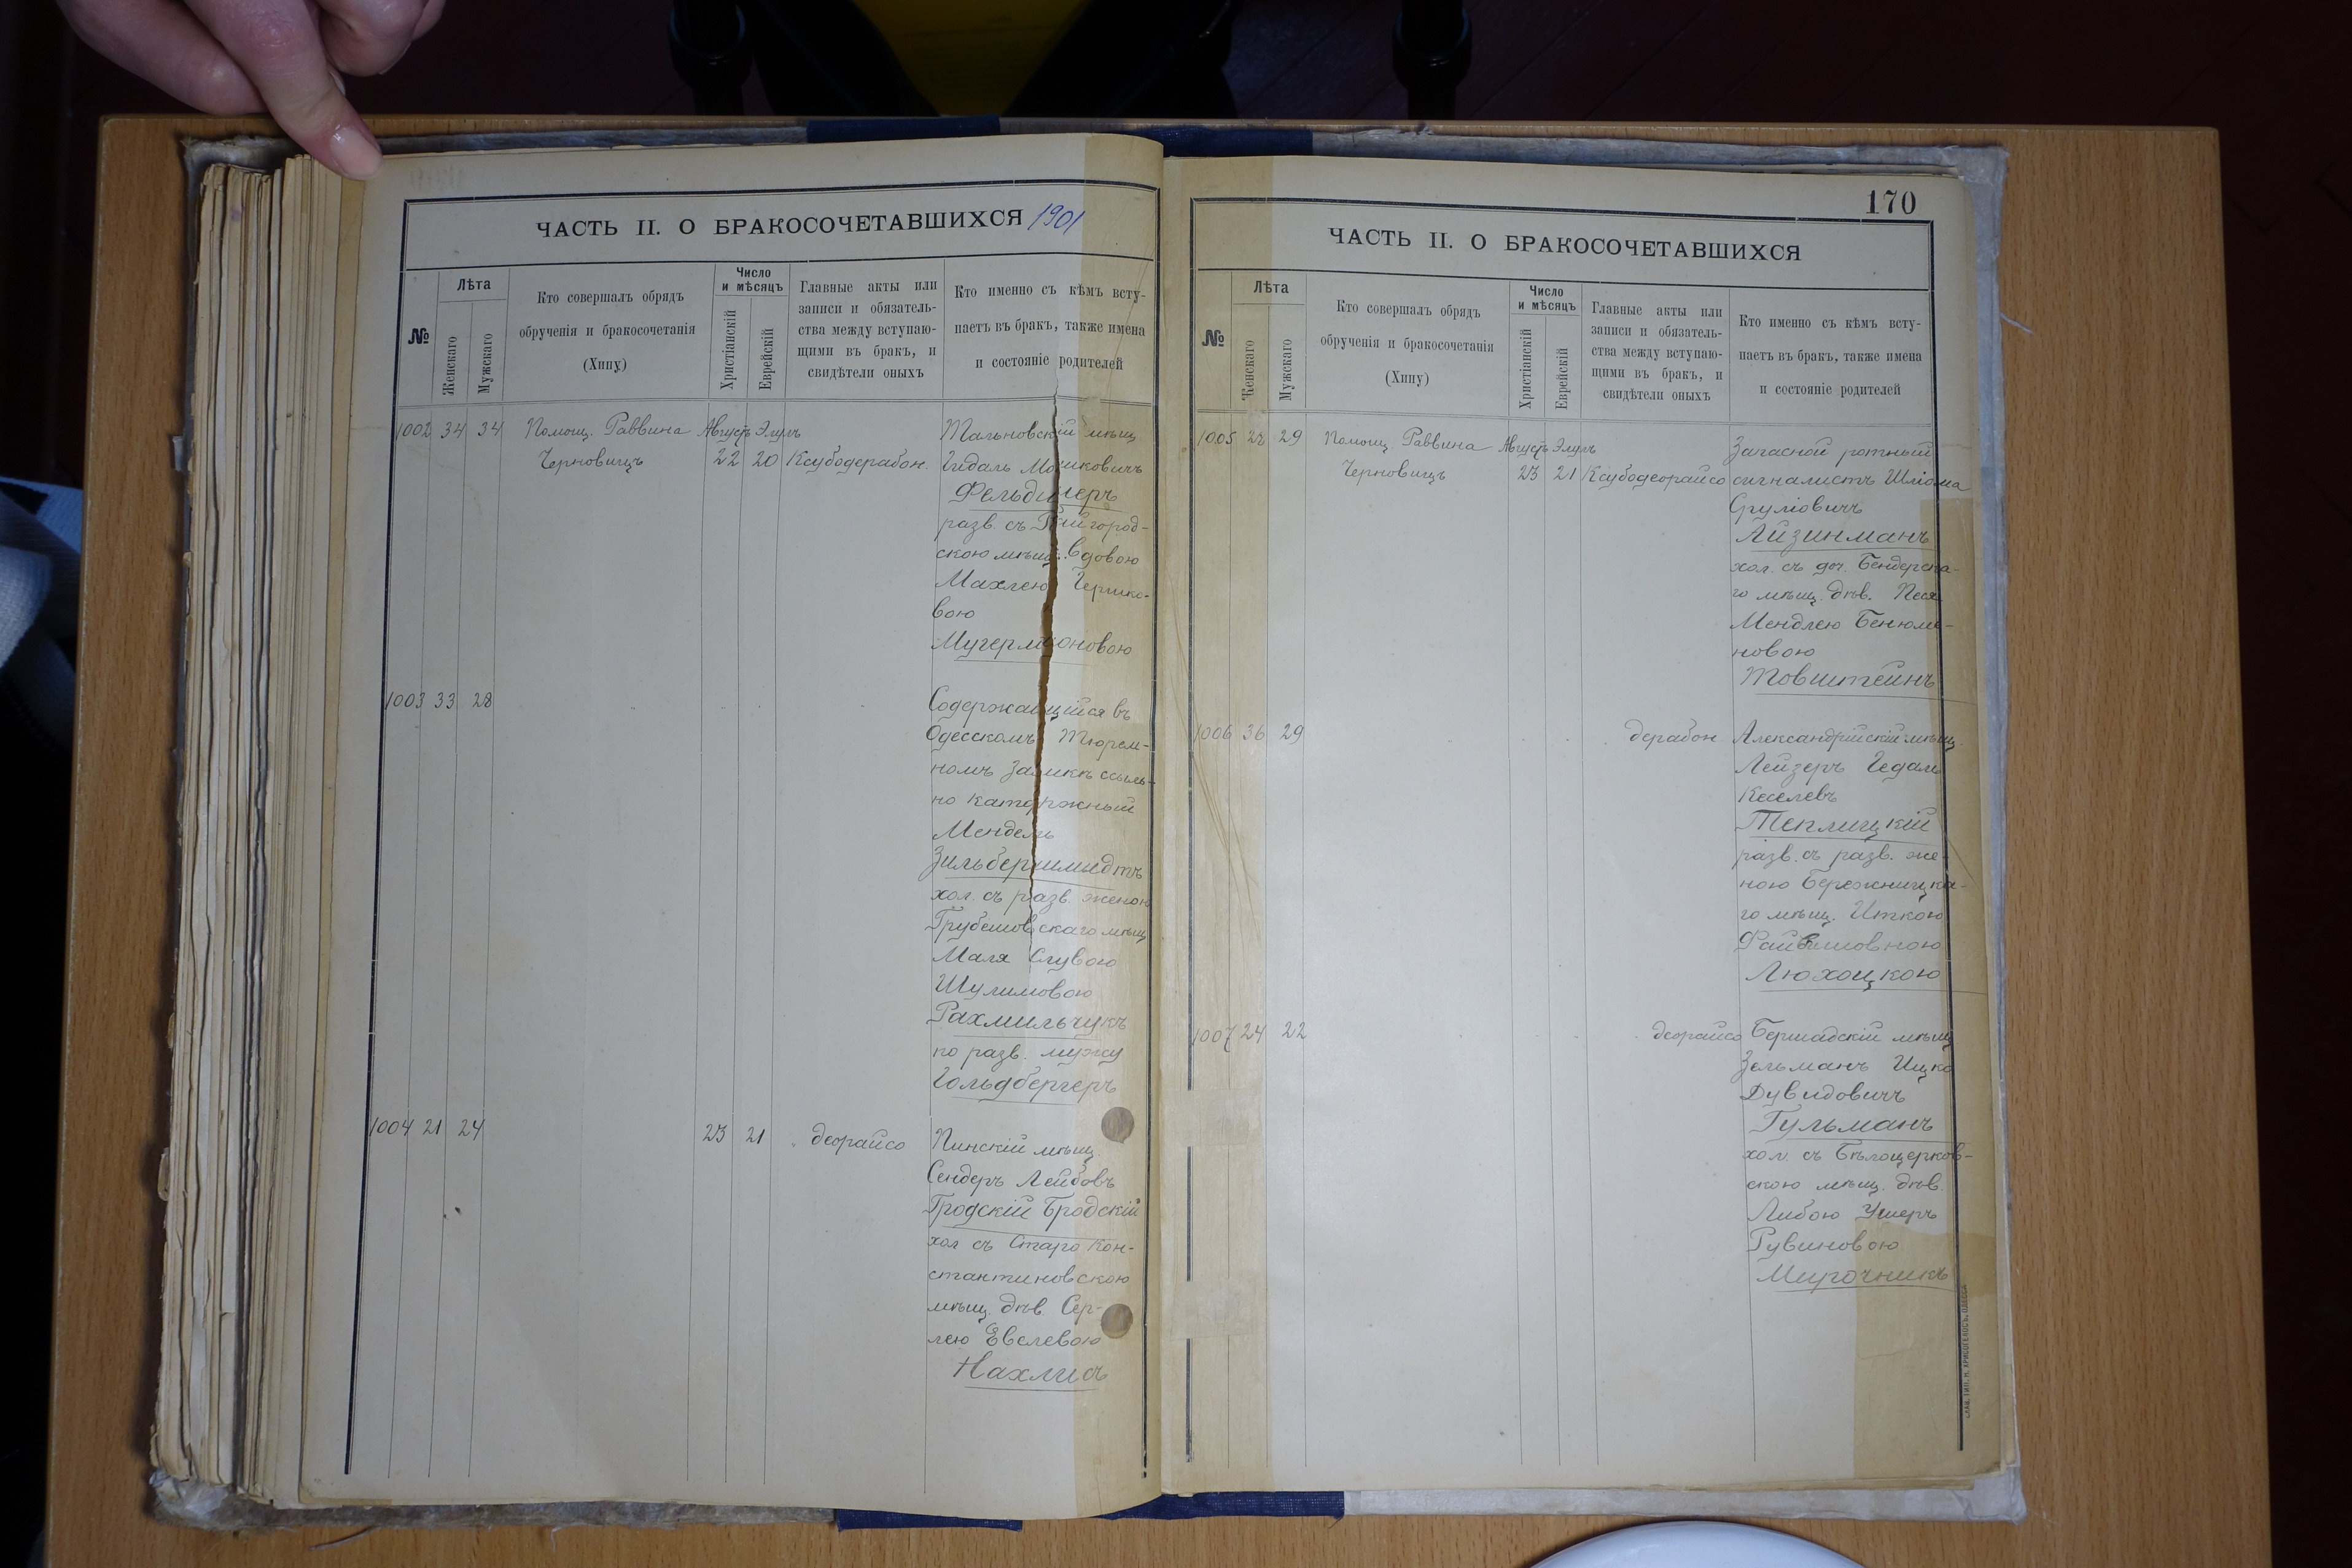 ЧАСТЬ II. О БРАКОСОЧЕТАВШИХСЯ 1901
№
Лѣта
Женскаго
Мужскаго
Кто совершалъ обрядъ
обрученія и бракосочетанія
(Хипу)
Число
и мѣсяцъ
Христіанскій
Еврейскій
Главные акты или
записи и обязатель-
ства между вступаю-
щими въ бракъ, и
свидѣтели оныхъ
Кто именно съ кѣмъ всту-
паетъ въ бракъ, также имена
и состояніе родителей
1002 34 34 Помощ. Раввина Августъ Элулъ Тальновскій мѣщ
Черновицъ 22 20 Ксубодерабон. Гидаль Мошковичъ
Фельдшеръ
разв. съ городскою мѣщ. вдовою
Махлею Гершко-
вою
1003 33 28 Содержащійся въ
Одесскомъ Тюрем-
номъ Замкѣ ссыль-
но каторжный
Мендель
Зильбершмидтъ
хол. съ разв. женою
Грубешовскаго мѣщ
Маля Слувою
Шулимовою
Рахмильчукъ
по разв. мужу
Гольдбергеръ
1004 21 24 23 21 " деорайсо Пинскій мѣщ.
Сендеръ Лейбовъ
Гродскій Бродскій
хол съ Старо Кон-
стантиновскою
мѣщ. дѣв. Сер-
лею Евелевою
Нахлисъ
170
ЧАСТЬ II. О БРАКОСОЧЕТАВШИХСЯ
№
Лѣта
Женскаго
Мужскаго
Кто совершалъ обрядъ
обрученія и бракосочетанія
(Хипу)
Число
и мѣсяцъ
Христіанскій
Еврейскій
Главные акты или
записи и обязатель-
ства между вступаю-
щими въ бракъ, и
свидѣтели оныхъ
Кто именно съ кѣмъ всту-
паетъ въ бракъ, также имена
и состояніе родителей
1005 28 29 Помощ Раввина Августъ Элулъ Запасной ротный
Черновицъ 23 21 Ксубодеорайсо сигналистъ Шліома
Сруліовичъ
Айзинманъ
хол. съ доч. Бендерска-
го мѣщ. дѣв. Песя
Мендлею Бенюми-
новою
Товштейнъ
1006 36 29 дерабон Александрійскій мѣщ.
Лейзеръ Гедаль
Кеселевъ
Теплицкій
разв. съ разв. же-
ною Бережницка-
го мѣщ. Иткою
Файвишовною
Люхоцкою
1007 24 22 деорайсо Бершадскій мѣщ
Зельманъ Ицко
Дувидовичъ
Гульманъ
хол съ Бѣлоцерков-
скою мѣщ. дѣв.
Либою Ушеръ
Рувиновою
Мирочникъ